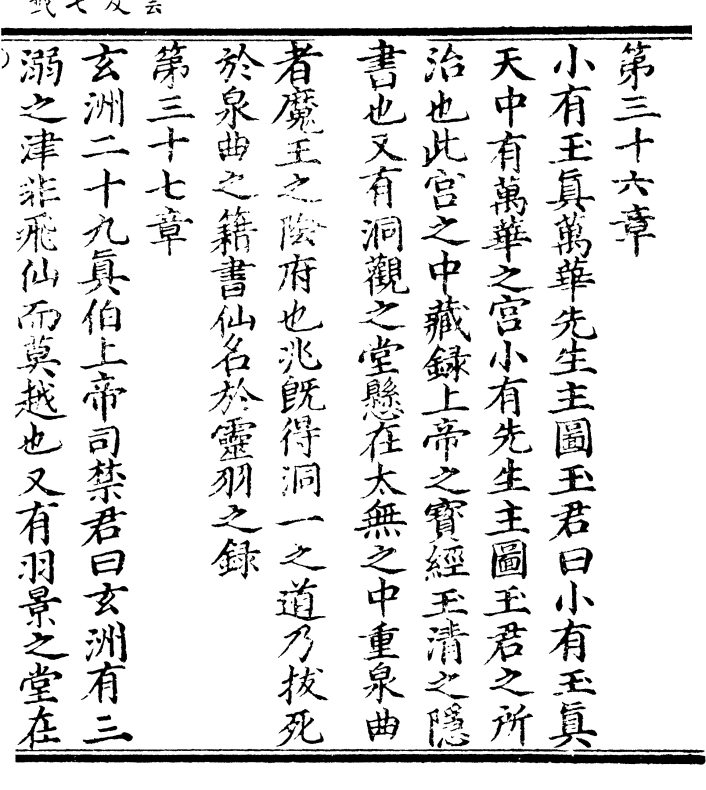 第三十六章
小有玉眞萬華先生主圖玉君曰小有玉眞
天中有萬華之宮小有先生主圖玉君之所
治也此宮之中藏録上帝之寶經玉清之隱
書也又有洞觀之堂懸在太無之中重泉曲
者魔王之陰府也兆旣得洞一之道乃拔死
於泉曲之籍書仙名於靈羽之録
第三十七章
玄洲二十九眞伯上帝司禁君曰玄洲有三
溺之津非飛仙而莫越也又有羽景之堂在